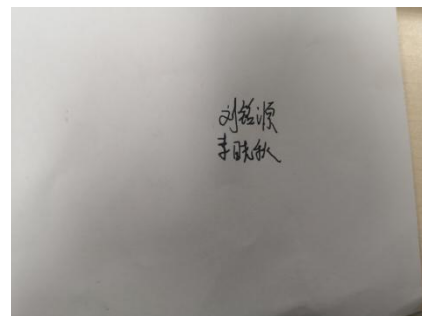 刘铭源
李晓秋